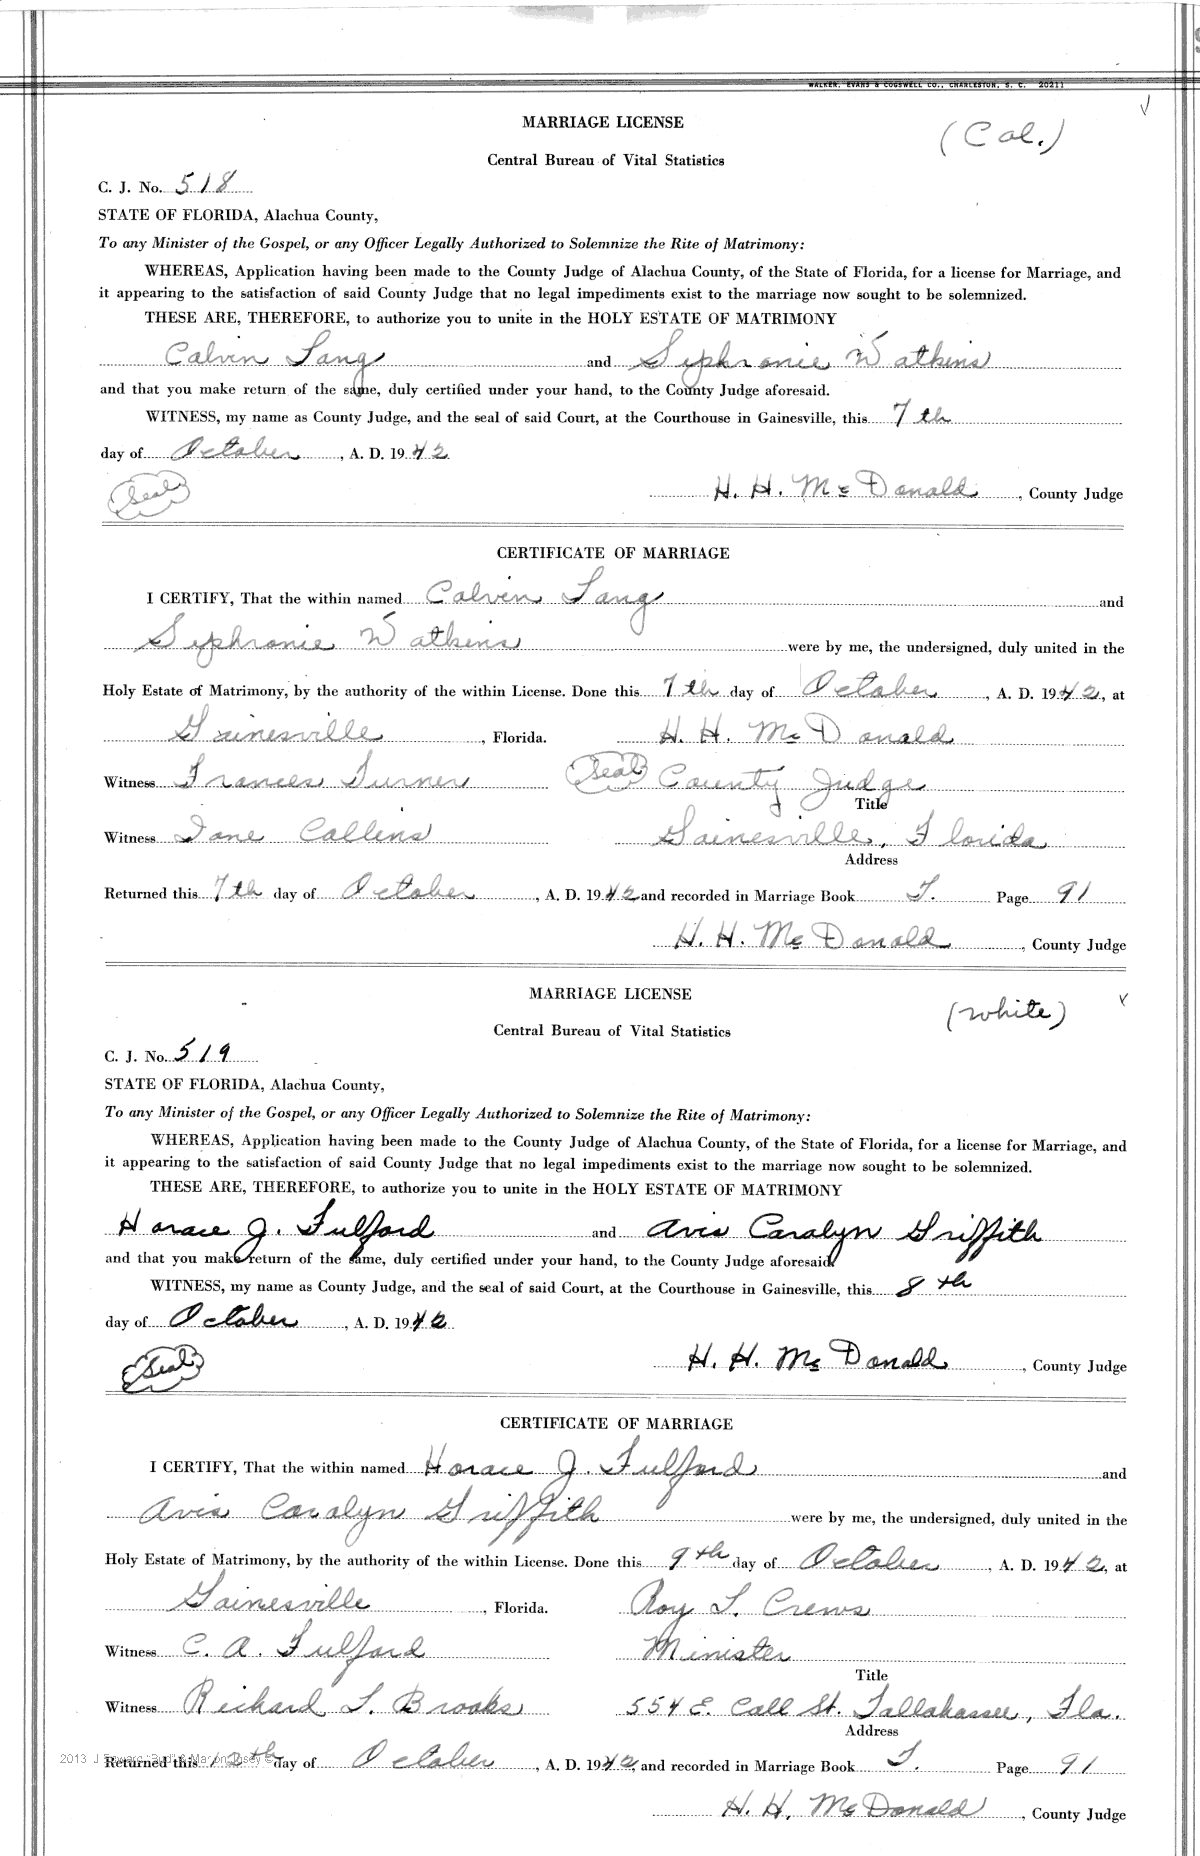 WALKER, EVANS & COGSWELL CO., CHARLESTON, S. C. 20211
MARRIAGE LICENSE
(Col.)
Central Bureau of Vital Statistics
C. J. No. 518
STATE OF FLORIDA, Alachua County,
To any Minister of the Gospel, or any Officer Legally Authorized to Solemnize the Rite of Matrimony:
WHEREAS, Application having been made to the County Judge of Alachua County, of the State of Florida, for a license for Marriage, and
it appearing to the satisfaction of said County Judge that no legal impediments exist to the marriage now sought to be solemnized.
THESE ARE, THEREFORE, to authorize you to unite in the HOLY ESTATE OF MATRIMONY
Calvin Lang and Sephronie Watkins
and that you make return of the same, duly certified under your hand, to the County Judge aforesaid.
WITNESS, my name as County Judge, and the seal of said Court, at the Courthouse in Gainesville, this 7th
day of October, A. D. 1942
Seal H. H. McDonald, County Judge
CERTIFICATE OF MARRIAGE
I CERTIFY, That the within named Calvin Lang and
Sephronie Watkins were by me, the undersigned, duly united in the
Holy Estate of Matrimony, by the authority of the within License. Done this 7th day of October, A. D. 1942, at
Gainesville, Florida. H. H. McDonald
Witness Frances Turner Seal County Judge
Title
Witness Jane Collins Gainesville, Florida
Address
Returned this 7th day of October, A. D. 1942 and recorded in Marriage Book T. Page 91
H. H. McDonald, County Judge
MARRIAGE LICENSE
(white)
Central Bureau of Vital Statistics
C. J. No. 519
STATE OF FLORIDA, Alachua County,
To any Minister of the Gospel, or any Officer Legally Authorized to Solemnize the Rite of Matrimony:
WHEREAS, Application having been made to the County Judge of Alachua County, of the State of Florida, for a license for Marriage, and
it appearing to the satisfaction of said County Judge that no legal impediments exist to the marriage now sought to be solemnized.
THESE ARE, THEREFORE, to authorize you to unite in the HOLY ESTATE OF MATRIMONY
Horace J. Fulford and Avis Caralyn Griffith
and that you make return of the same, duly certified under your hand, to the County Judge aforesaid.
WITNESS, my name as County Judge, and the seal of said Court, at the Courthouse in Gainesville, this 8th
day of October, A. D. 1942
Seal H. H. McDonald, County Judge
CERTIFICATE OF MARRIAGE
I CERTIFY, That the within named Horace J. Fulford and
Avis Caralyn Griffith were by me, the undersigned, duly united in the
Holy Estate of Matrimony, by the authority of the within License. Done this 9th day of October, A. D. 1942, at
Gainesville, Florida. Roy L. Crews
Witness C. A. Fulford Minister
Title
Witness Richard L. Brooks 554 E. Call St. Tallahassee, Fla.
Address
Returned this 12th day of October, A. D. 1942, and recorded in Marriage Book T. Page 91
H. H. McDonald, County Judge